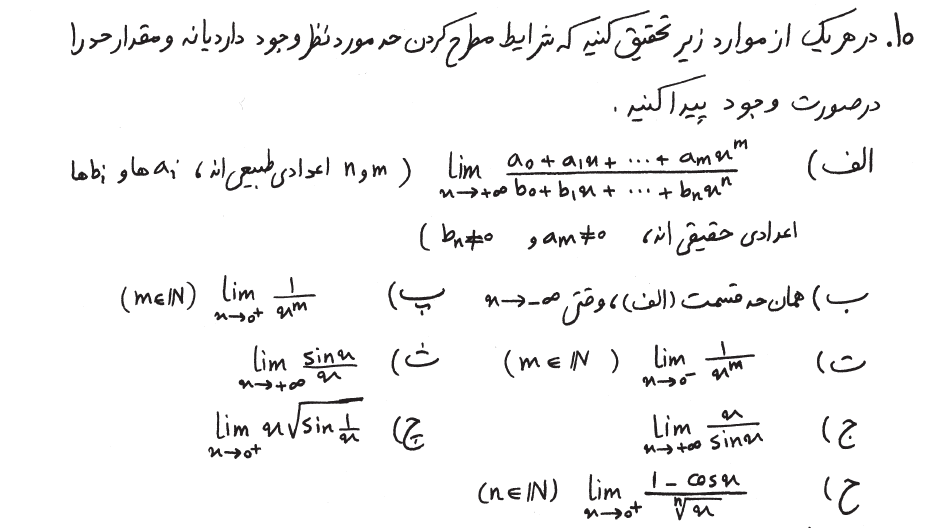 ۱۰. در هر یک از موارد زیر تحقیق کنید که شرایط مطرح کردن حد مورد نظر وجود دارد یا نه و مقدار حد را
در صورت وجود پیدا کنید.
الف) lim_{x→+∞} (a₀+a₁x+⋯+aₘxᵐ)/(b₀+b₁x+⋯+bₙxⁿ) (m و n اعدادی طبیعی اند، aᵢ ها و bᵢ ها
اعدادی حقیقی اند، aₘ≠0 و bₙ≠0)
ب) همان حد قسمت (الف)، وقتی x→-∞ پ) lim_{x→0⁺} 1/xᵐ (m∈ℕ)
ت) lim_{x→0⁻} 1/xᵐ (m∈ℕ) ث) lim_{x→+∞} sinx/x
ج) lim_{x→+∞} x/sinx چ) lim_{x→0⁺} x√(sin 1/x)
ح) lim_{x→0⁺} (1-cosx)/ⁿ√x (n∈ℕ)